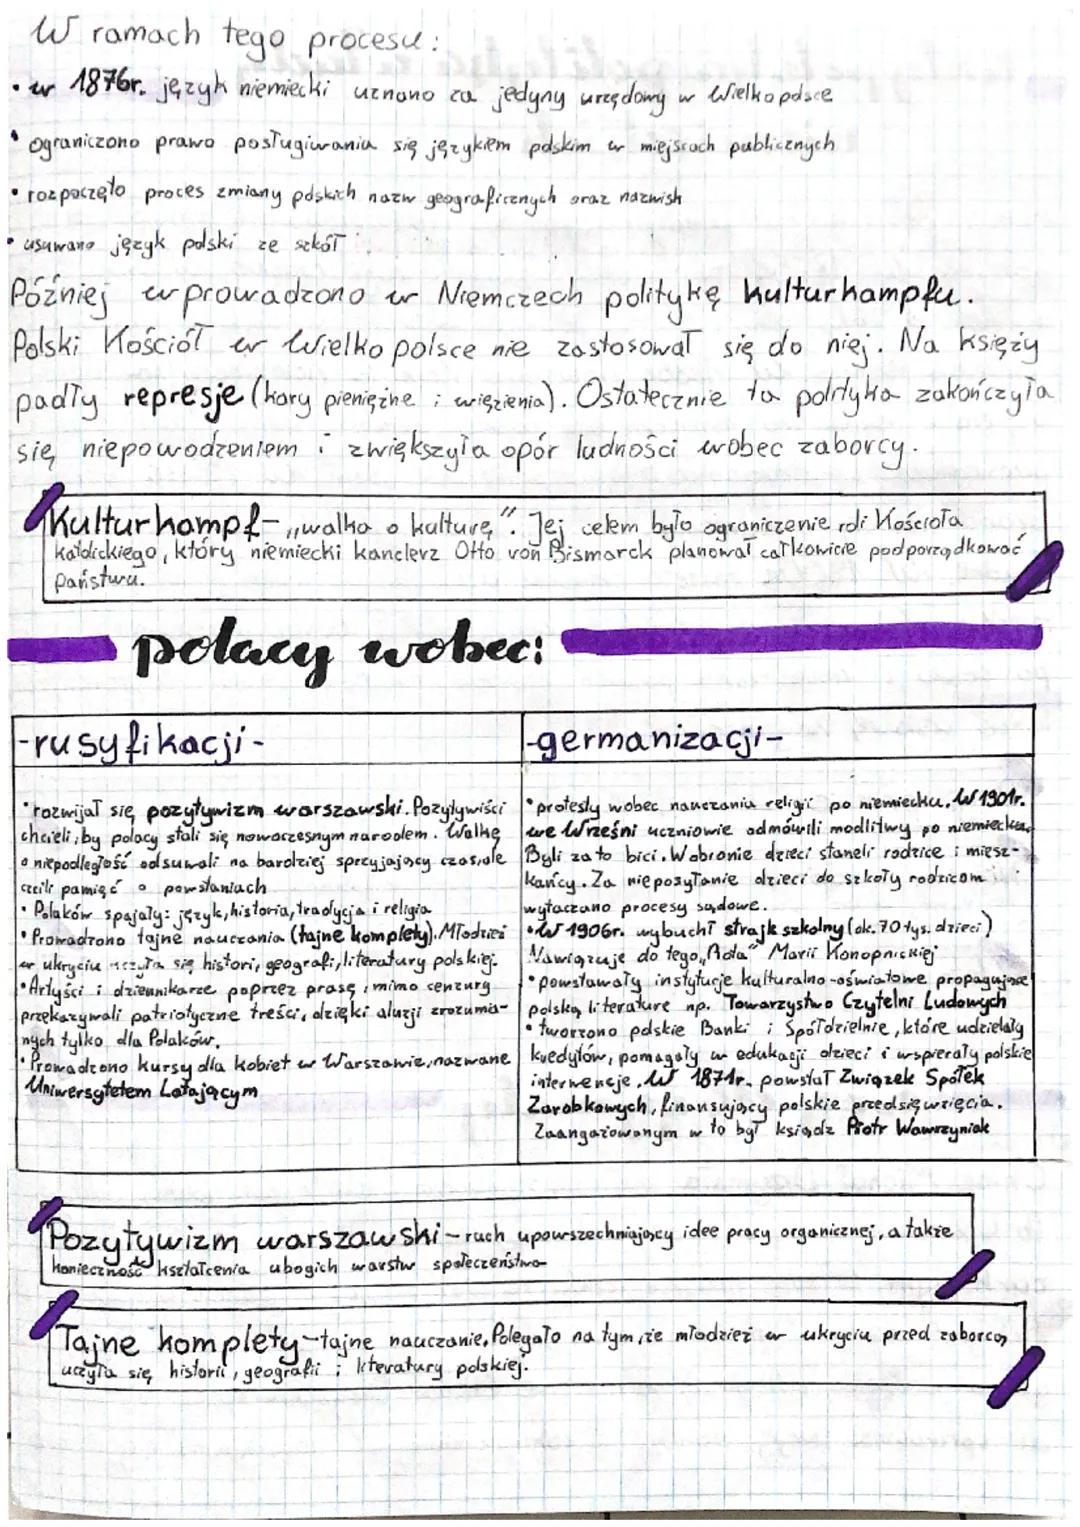 W ramach tego procesu:
• w 1876r. język niemiecki uznano za jedyny urzędowy w Wielkopolsce
• ograniczono prawo posługiwania się językiem polskim w miejscach publicznych
• rozpoczęto proces zmiany polskich nazw geograficznych oraz nazwisk
• usuwano język polski ze szkół
Później wprowadzono w Niemczech politykę kulturkampfu.
Polski Kościół w Wielkopolsce nie zastosował się do niej. Na księży
padły represje (kary pieniężne i więzienia). Ostatecznie ta polityka zakończyła
się niepowodzeniem i zwiększyła opór ludności wobec zaborcy.
Kulturkampf - „walka o kulturę". Jej celem było ograniczenie roli Kościoła
katolickiego, który niemiecki kanclerz Otto von Bismarck planował całkowicie podporządkować
państwu.
polacy wobec:
-rusyfikacji-
• rozwijał się pozytywizm warszawski. Pozytywiści
chcieli, by polacy stali się nowoczesnym narodem. Walkę
o niepodległość odsuwali na bardziej sprzyjający czas, ale
czcili pamięć o powstaniach
• Polaków spajały: język, historia, tradycja i religia
• Prowadzono tajne nauczania (tajne komplety). Młodzież
w ukryciu uczyła się histori, geografi, literatury polskiej.
• Artyści i dziennikarze poprzez prasę, mimo cenzury
przekazywali patriotyczne treści, dzięki aluzji zrozumia-
nych tylko dla Polaków.
• Prowadzono kursy dla kobiet w Warszawie, nazwane
Uniwersytetem Latającym
-germanizacji-
• protesty wobec nauczania religii po niemiecku. W 1901r.
we Wrześni uczniowie odmówili modlitwy po niemiecku.
Byli za to bici. W obronie dzieci staneli rodzice i miesz-
kańcy. Za nieposyłanie dzieci do szkoły rodzicom
wytaczano procesy sądowe.
• W 1906r. wybuchł strajk szkolny (ok. 70 tys. dzieci)
Nawiązuje do tego „Rota" Marii Konopnickiej
• powstawały instytucje kulturalno-oświatowe propagujące
polską literature np. Towarzystwo Czytelni Ludowych
• tworzono polskie Banki i Spółdzielnie, które udzielały
kredytów, pomagały w edukacji dzieci i wspierały polskie
interwencje. W 1871r. powstał Związek Spółek
Zarobkowych, finansujący polskie przedsięwzięcia.
Zaangażowanym w to był ksiądz Piotr Wawrzyniak
Pozytywizm warszawski - ruch upowszechniający idee pracy organicznej, a także
konieczność kształcenia ubogich warstw społeczeństwa
Tajne komplety - tajne nauczanie. Polegało na tym, że młodzież w ukryciu przed zaborcą
uczyła się historii, geografii i literatury polskiej.